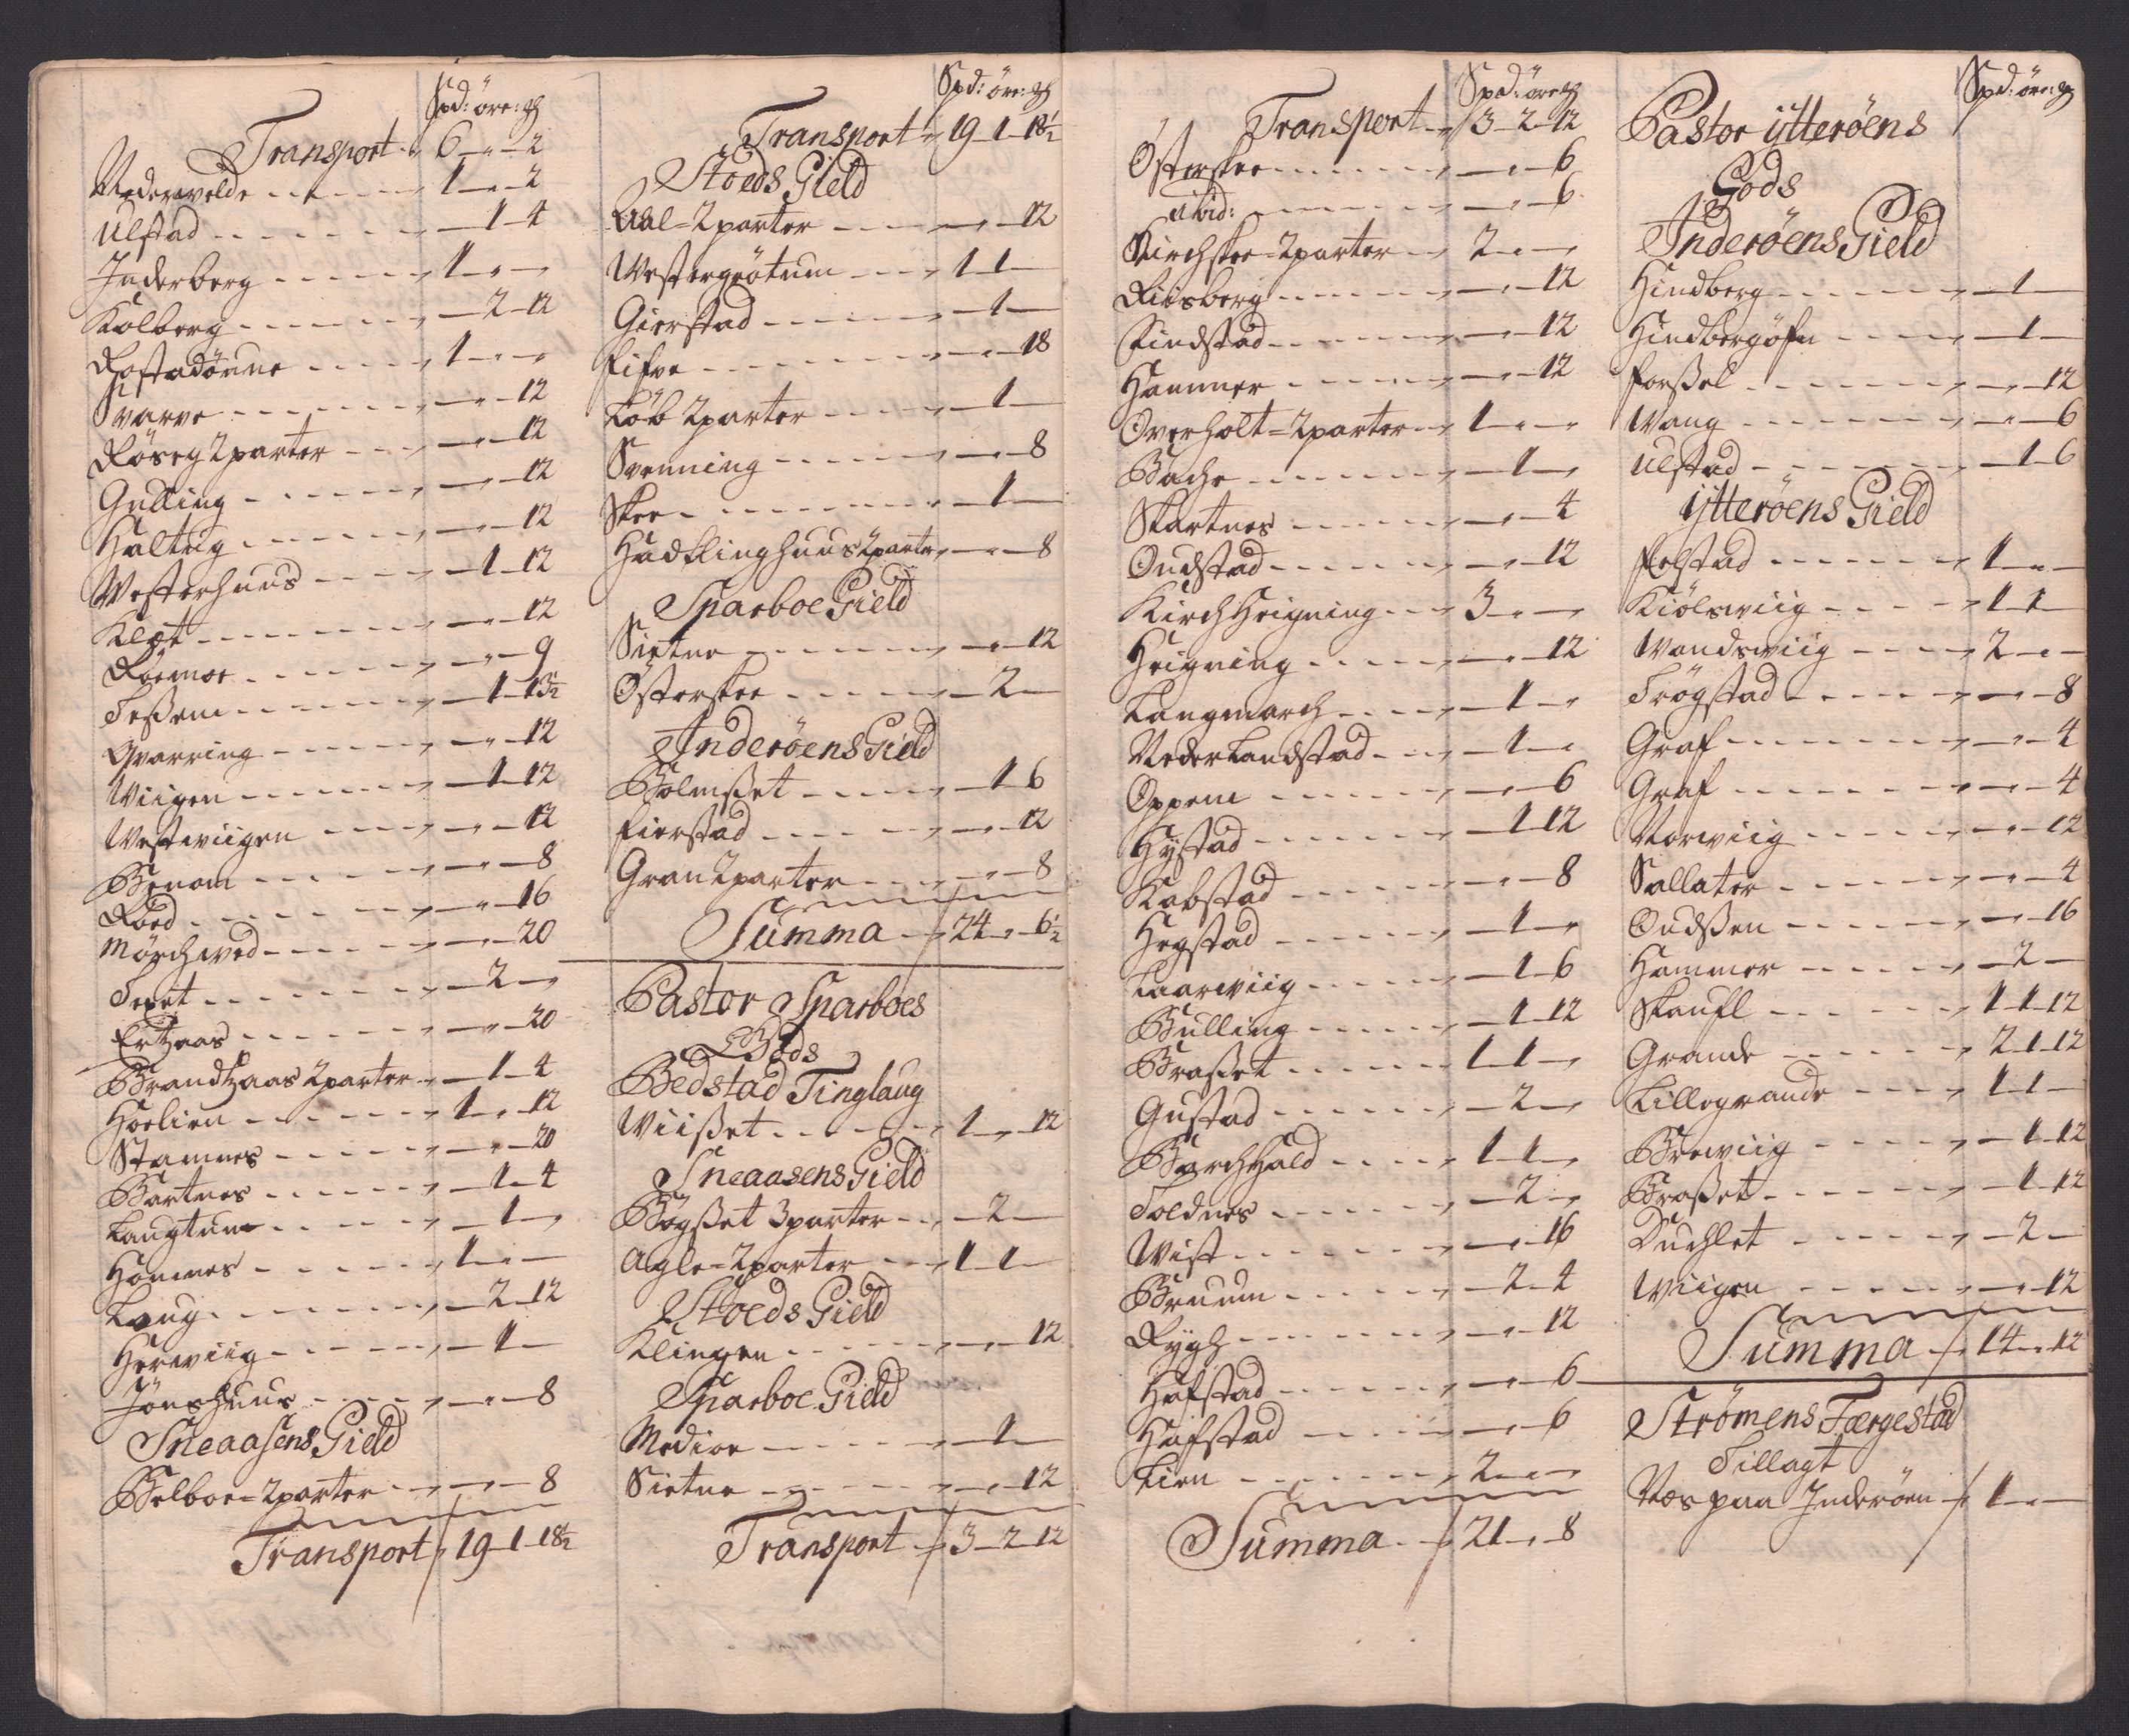 Spd: öre: mk
Transport 6 „ 2
Nederwolde 1 „ 2
Ulstad 1 4
Inderberg 1 „ „
Kolberg 2 12
Rostadönne 1 „ „
Svarve „ 12
Röseg 2 parter „ 12
Gulling „ 12
Haltug „ 12
Westerhuus 1 12
Klæt „ 12
Röemoe „ 9
Tessem 1 13½
Qvarring „ 12
Wiigen 1 12
Westwiigen „ 12
Benom „ 8
Röed „ 16
Mörchwed „ 20
Topet 2 „
Ertzaas „ 20
Brandtzaas 2 parter 1 4
Hoelien 1 „ 12
Stamnes „ 20
Bartnes 1 4
Langtum 1 „
Hammes 1 „ „
Laug 2 12
Herwiig 1
Jönshuus „ 8
Sneaasens Gield
Belboe = 2 parter „ 8
Transport 19 1 18½
Spd: öre: mk
Transport 19 1 18½
Stoeds Gield
Aal = 2 parter „ 12
Westergrötum 1 1
Gierstad 1
Fifve „ 18
Löb 2 parter 1
Svenning „ 8
Skee 1
Hadklinghuus 2 parter „ 8
Sparboe Gield
Sietne „ 12
Österskee 2
Inderöens Gield
Bolmsset 1 6
Fierstad „ 12
Gran 2 parter „ 8
Summa 24 „ 6½
Pastor Sparboes
Gods
Bedstad Tinglaug
Wiisset 1 „ 12
Sneaasens Gield
Bögsset 3 parter 2
Agle = 2 parter 1 1
Stoeds Gield
Klingen „ 12
Sparboe Gield
Medioe 1
Sietne „ 12
Transport 3 2 12
Spd: öre mk
Transport 3 2 12
Österskee „ 6
ibid: „ 6
Kirchskee = 2 parter 2 „
Riisberg „ 12
Findstad „ 12
Hammer „ 12
Overholt = 2 parter 1 „ „
Bache 1
Skartnes „ 4
Oudstad „ 12
Kirch Heigning 3 „
Heigning „ 12
Langmarch 1 „
Nederlandstad 1 „
Oppem „ 6
Hÿstad 1 12
Kabstad „ 8
Hegstad 1 „
Laarwiig 1 6
Bulling 1 12
Brasset 1 1
Gustad 2 „
Barchhald 1 1
Toldnes 2 „
Wist „ 16
Bruum 2 4
Rygh „ 12
Hafstad „ 6
Hafstad „ 6
Lien 2 „ „
Summa 21 „ 8
Spd: öre: mk
Pastor Ytteröens
Gods
Inderöens Gield
Hindberg 1
Hindbergöfn 1
Forssel „ 12
Wang „ 6
Ulstad 1 6
Ytteröens Gield
Felstad 1 „
Kiölswiig 1 1
Wandswiig 2 „
Trögstad „ 8
Graf „ 4
Graf „ 4
Norwiig „ 12
Sallater „ 4
Oudssen „ 16
Hammer 2
Skaufl 1 1 12
Grande 2 1 12
Lillegrande 1 1
Brewiig 1 12
Brasset 1 12
Duehlet 2
Wiigen „ 12
Summa 14 „ 12
Strömens Færgestad
Tillagt
Næs paa Inderöen 1 „